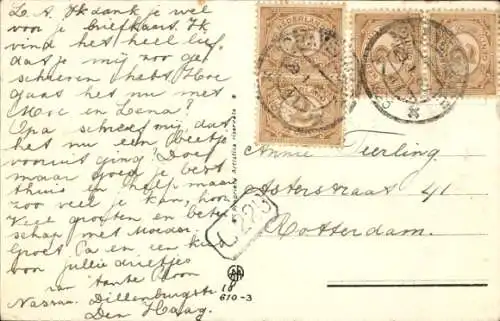 L. A. Ik dank je wel
voor je briefkaart. Ik
vind het heel lief
dat je mij zoo ge-
schreven hebt. Hoe
gaat het nu met
Moe en Lena?
Opa schreef mij, dat
het nu een beetje
vooruit ging! Doe
maar goed je best
thuis en help maar
zoo veel je kan, hoor
Veel groeten en beter-
schap met Moeder.
Groet Pa en een kus
voor jullie drietjes
van tante
Nassau Dillenburgstr. 18
Den Haag.
NEDERLAND
Annie Teerling
Asterstraat 41
Rotterdam.
L 223
610-3